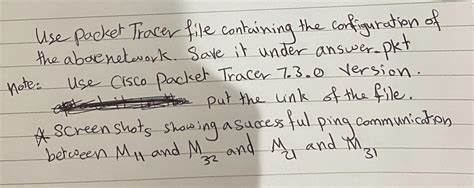 Use packet Tracer file containing the configuration of
the above network. Save it under answer.pkt
Note: Use Cisco Packet Tracer 7.3.0 version.
put the link of the file.
* screenshots showing a successful ping communication
between M11 and M32 and M21 and M31